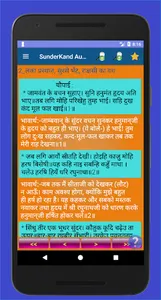 SunderKand Au...
२. लंका प्रस्थान, सुरसा भेंट, राक्षसी का वध
चौपाई
जामवंत के बचन सुहाए। सुनि हनुमंत हृदय अति
भाए॥तब लगि मोहि परिखेहु तुम्ह भाई। सहि दुख
कंद मूल फल खाई॥१॥
भावार्थ:-जाम्बवान् के सुंदर वचन सुनकर हनुमान्जी
के हृदय को बहुत ही भाए। (वे बोले-) हे भाई! तुम
लोग दुःख सहकर, कन्द-मूल-फल खाकर तब तक
मेरी राह देखना॥१॥
जब लगि आवौं सीतहि देखी। होइहि काजु मोहि
हरष बिसेषी॥यह कहि नाइ सबन्हि कहुँ माथा ।
चलेउ हरषि हियँ धरि रघुनाथा॥२॥
भावार्थ:-जब तक मैं सीताजी को देखकर (लौट)
न आऊँ। काम अवश्य होगा, क्योंकि मुझे बहुत
ही हर्ष हो रहा है। यह कहकर और सबको
मस्तक नवाकर तथा हृदय में श्री रघुनाथजी को धारण
करके हनुमान्जी हर्षित होकर चले॥२॥
सिंधु तीर एक भूधर सुंदर। कौतुक कूदि चढ़ेउ ता